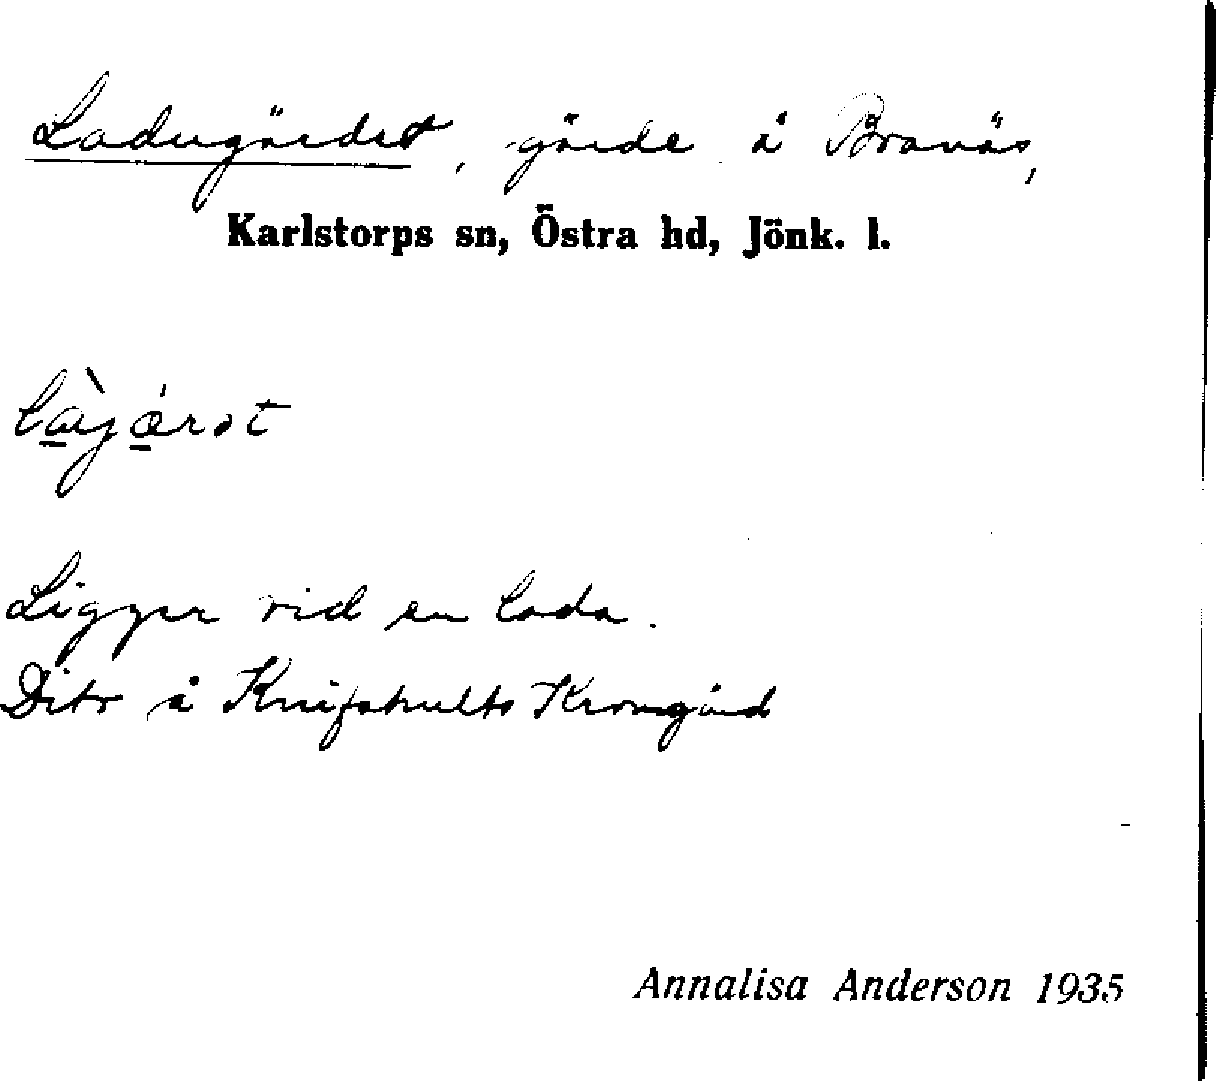 Ladugärdet, gärde å Bravås,
Karlstorps sn, Östra hd, Jönk. l.
Ligger vid en lada.
Dito å Knifshults Kronogård
Annalisa Anderson 1935